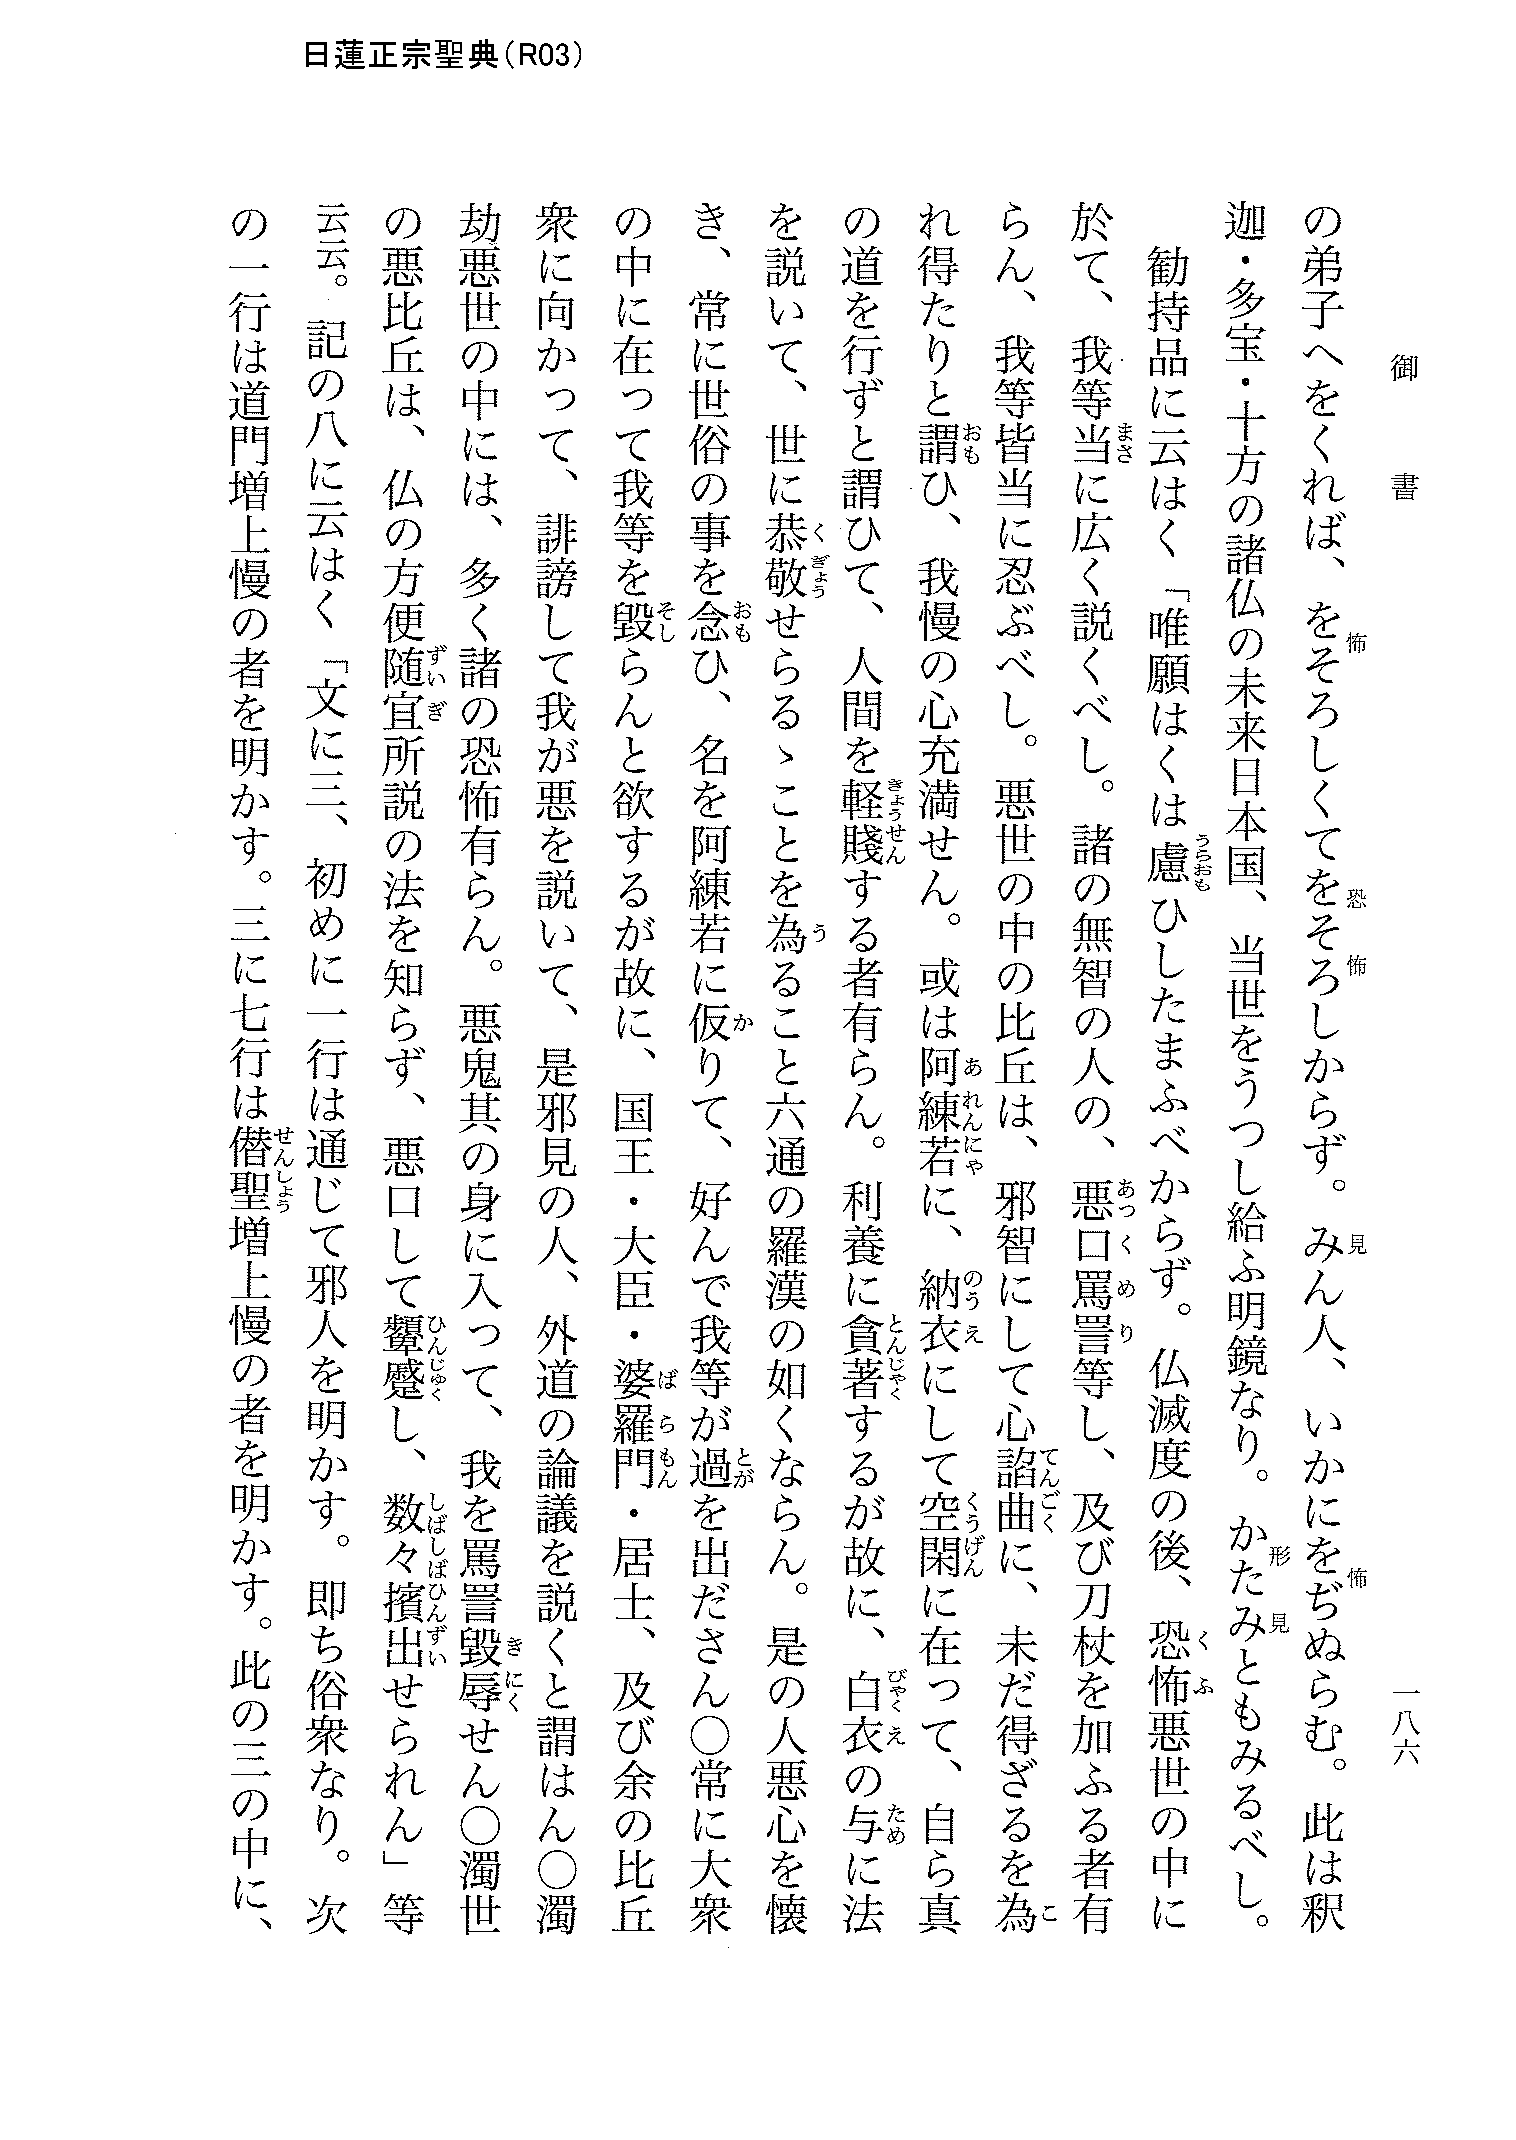 日蓮正宗聖典（R03）
御書
一八六
の弟子へをくれば、をそろしくてをそろしからず。みん人、いかにをぢぬらむ。此は釈
迦・多宝・十方の諸仏の未来日本国、当世をうつし給ふ明鏡なり。かたみともみるべし。
勧持品に云はく「唯願はくは慮ひしたまふべからず。仏滅度の後、恐怖悪世の中に
於て、我等当に広く説くべし。諸の無智の人の、悪口罵詈等し、及び刀杖を加ふる者有
らん、我等皆当に忍ぶべし。悪世の中の比丘は、邪智にして心諂曲に、未だ得ざるを為
れ得たりと謂ひ、我慢の心充満せん。或は阿練若に、納衣にして空閑に在って、自ら真
の道を行ずと謂ひて、人間を軽賤する者有らん。利養に貪著するが故に、白衣の与に法
を説いて、世に恭敬せらるゝことを為ること六通の羅漢の如くならん。是の人悪心を懐
き、常に世俗の事を念ひ、名を阿練若に仮りて、好んで我等が過を出ださん○常に大衆
の中に在って我等を毀らんと欲するが故に、国王・大臣・婆羅門・居士、及び余の比丘
衆に向かって、誹謗して我が悪を説いて、是邪見の人、外道の論議を説くと謂はん○濁
劫悪世の中には、多く諸の恐怖有らん。悪鬼其の身に入って、我を罵詈毀辱せん○濁世
の悪比丘は、仏の方便随宜所説の法を知らず、悪口して顰蹙し、数々擯出せられん」等
云云。記の八に云はく「文に三、初めに一行は通じて邪人を明かす。即ち俗衆なり。次
の一行は道門増上慢の者を明かす。三に七行は僭聖増上慢の者を明かす。此の三の中に、